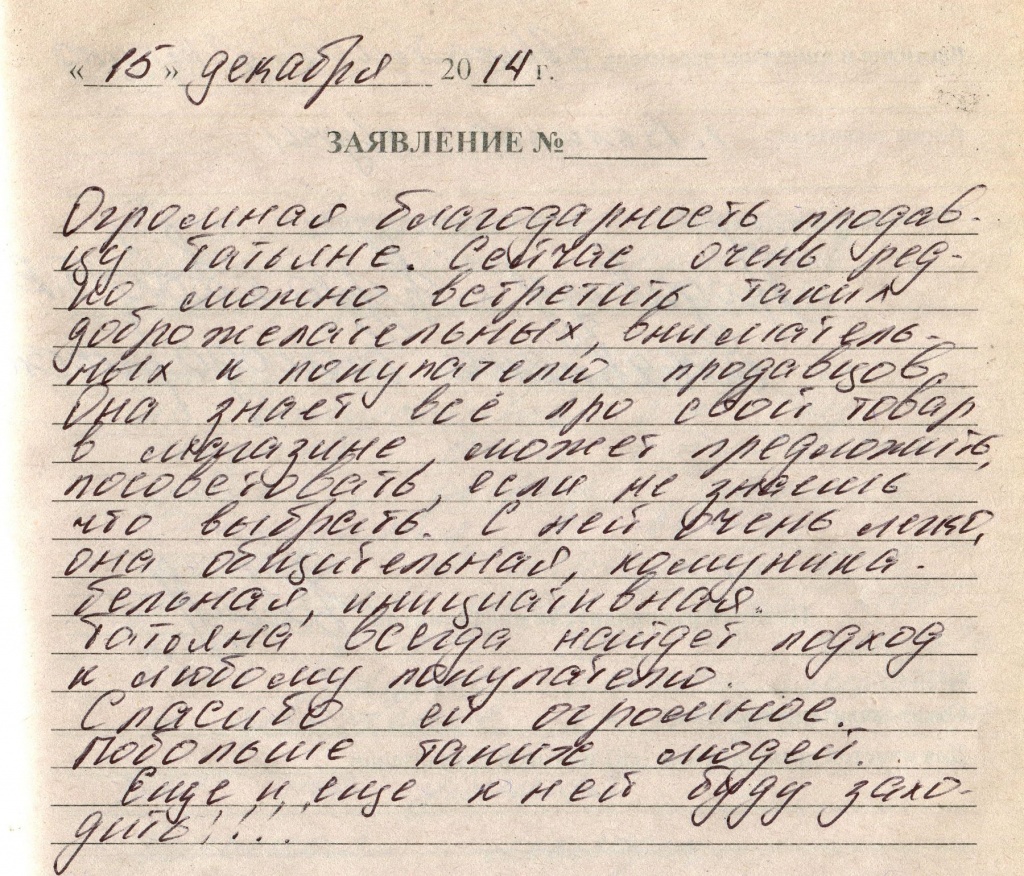 « 15 » декабря 2014 г.
ЗАЯВЛЕНИЕ №
Огромная благодарность продав-
цу Татьяне. Сейчас очень ред-
ко можно встретить таких
доброжелательных, вниматель-
ных к покупателю продавцов.
Она знает всё про свой товар
в магазине, может предложить,
посоветовать, если не знаешь
что выбрать. С ней очень легко,
она общительная, комуника-
бельная, инициативная.
Татьяна всегда найдет подход
к любому покупателю.
Спасибо ей огромное.
Побольше таких людей.
Еще и еще к ней буду захо-
дить!!!